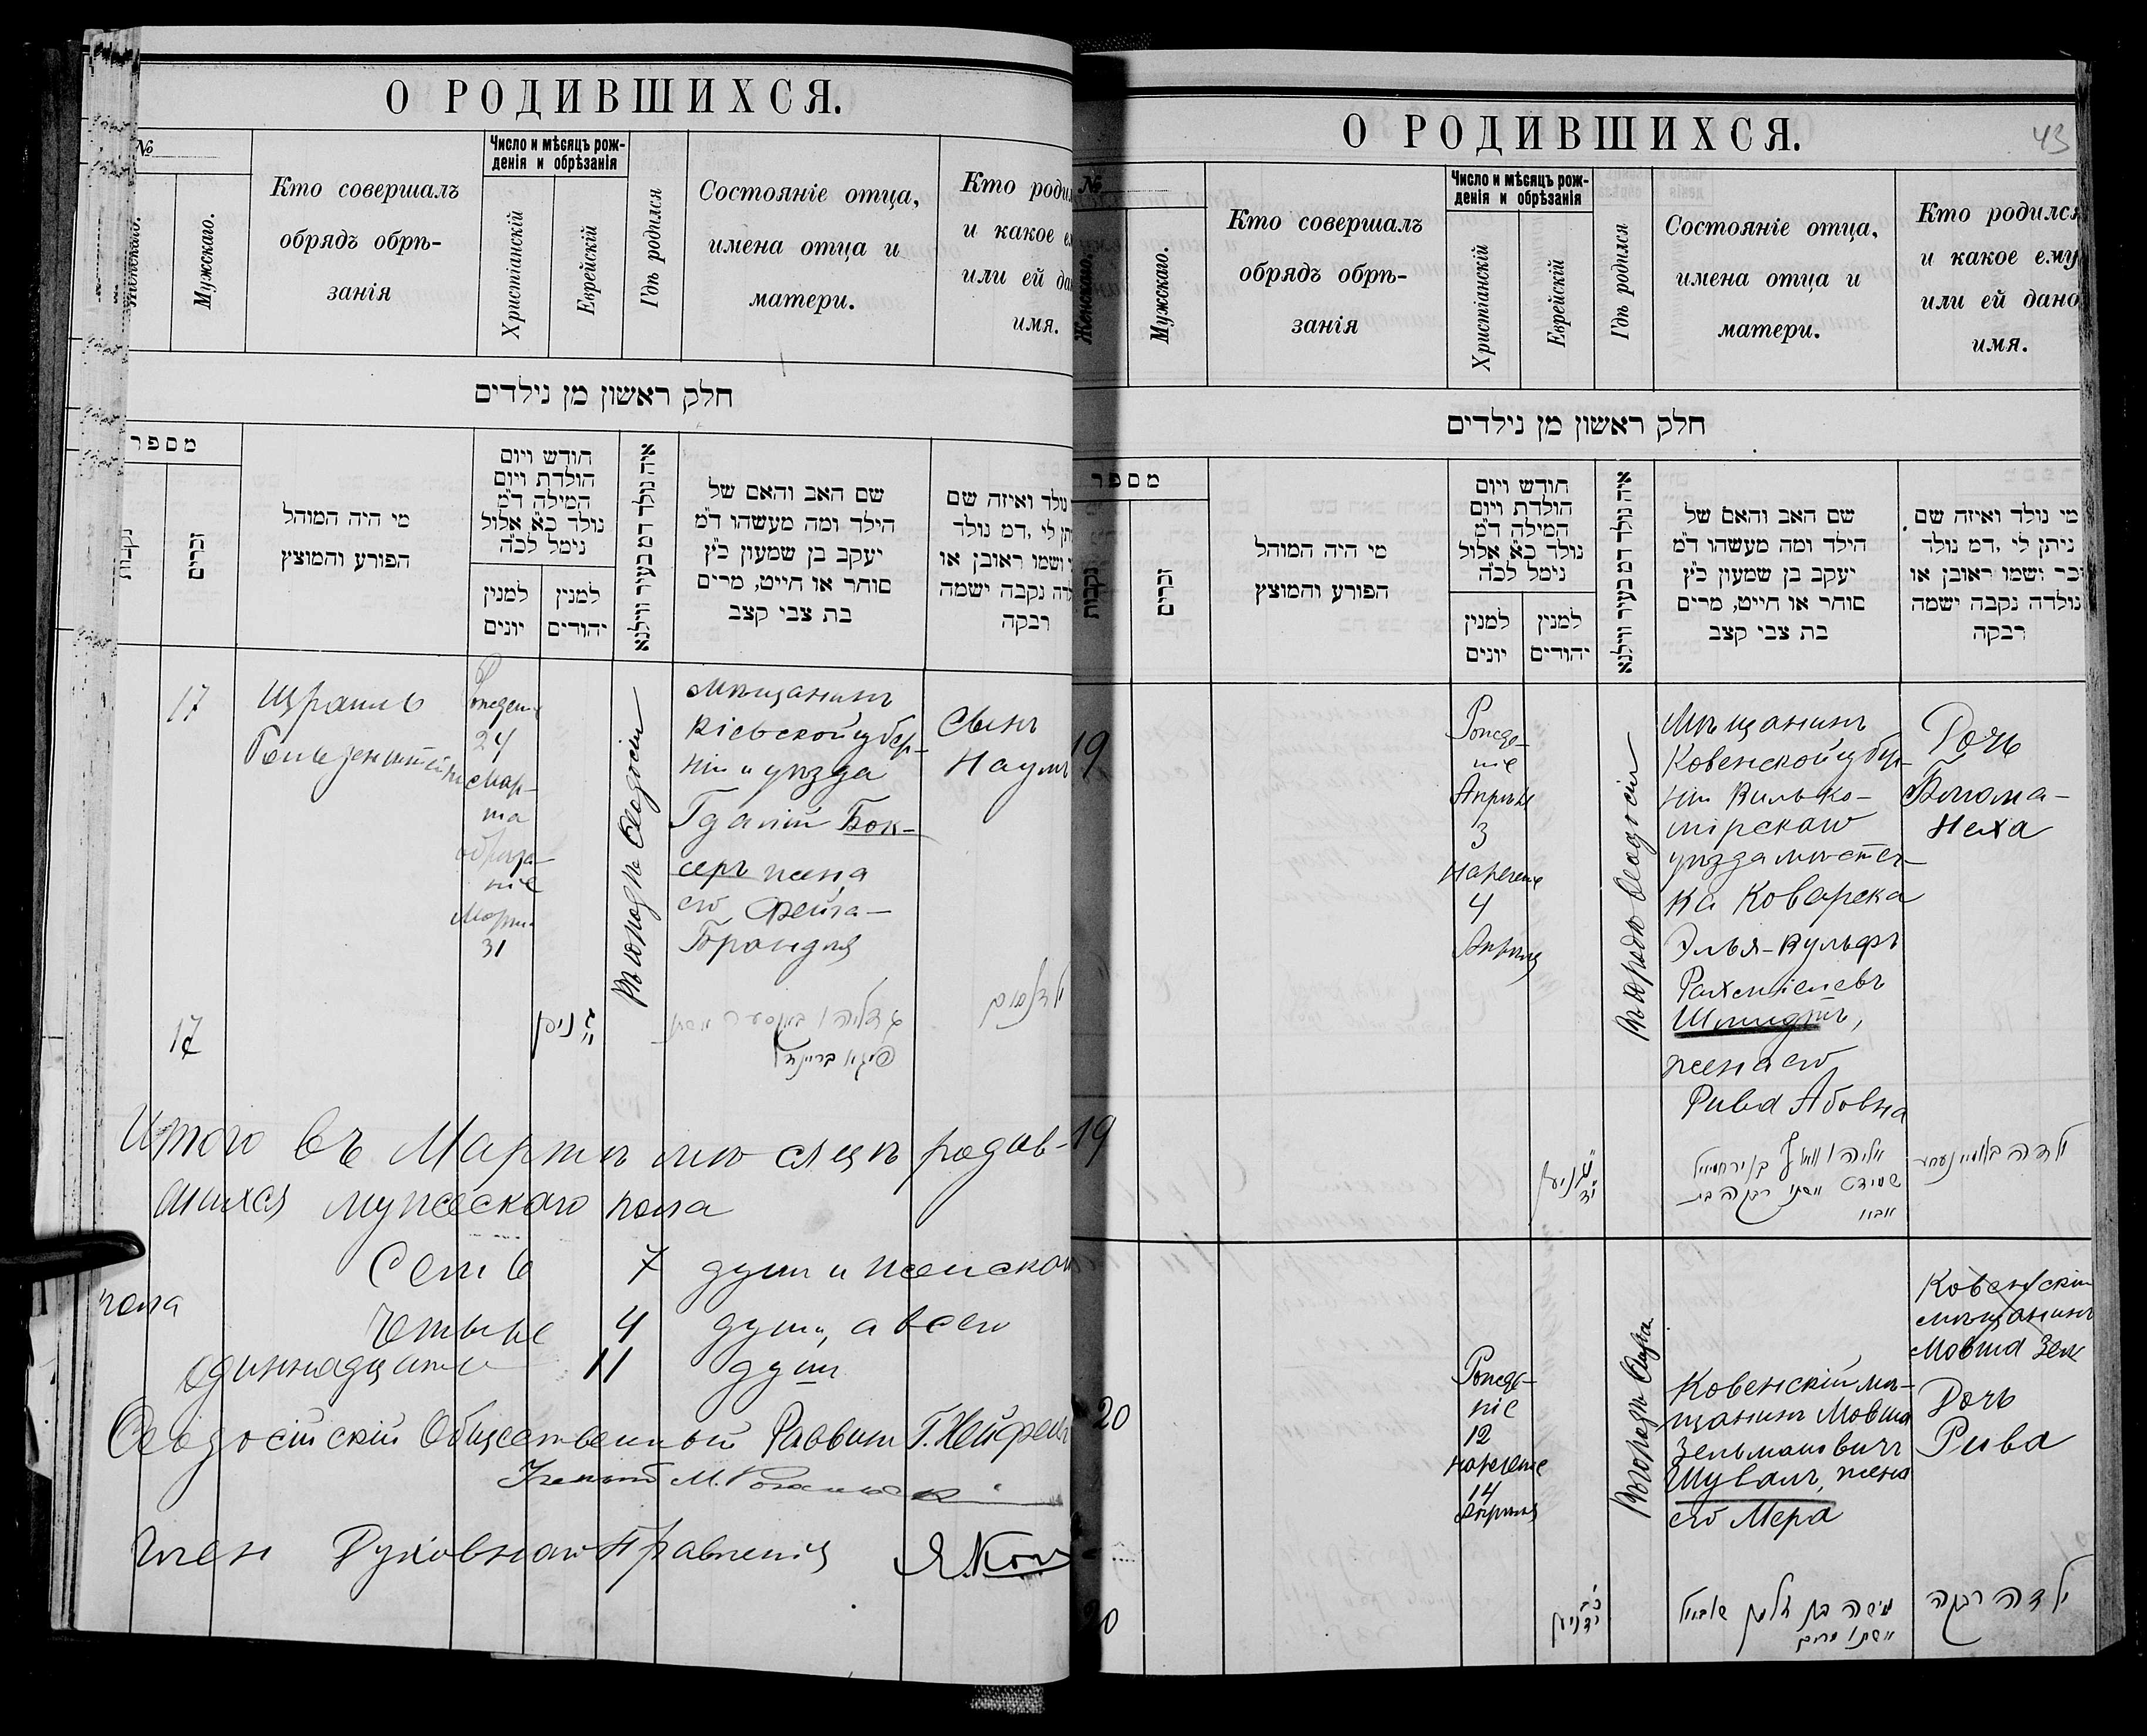 О РОДИВШИХСЯ.
№
Женскаго.
Мужскаго.
Кто совершалъ
обрядъ обрѣ-
занія
Число и мѣсяцъ рож-
денія и обрѣзанія
Христіанскій
Еврейскій
Гдѣ родился
Состояніе отца,
имена отца и
матери.
Кто роди
и какое е
или ей да
имя.
חלק ראשון מן נילדים
מספר
נקבות
זכרים
מי היה המוהל
הפורע והמוצץ
חודש ויום
הולדת ויום
המילה ד"מ
נולד כ"א אלול
נימל לכ"ה
למנין
יונים
למנין
יהודים
איה נולד דמ בעיר ווילנא
שם האב והאם של
הילד ומה מעשהו ד"מ
יעקב בן שמעון כ"ץ
סוחר או חייט, מרים
בת צבי קצב
נולד ואיזה שם
תן לי ,דמ נולד
ושמו ראובן או
לדה נקבה ישמה
רבקה
17
Израиль
Гольденштейнъ
Рожденіе
24
Мар-
та
обрѣза-
ніе
Марта
31
Въ городѣ Ѳеодосіи
Мѣщанинъ
Кіевской губер-
ніи и уѣзда
Гдалій Бок-
серъ жена
его Фейга-
Брандля
Сынъ
Наумъ
17
ג' ניסן
גדליהו באקסער אשתו
פייגא בריינדל
ילד נחום
Итого въ Мартѣ мѣсяцѣ родив-
шихся мужескаго пола
Семь 7 душъ и женскаго
пола
четыре 4 души, а всего
одиннадцать 11 душъ
Ѳеодосійскій Общественный Раввинъ Г. Нейфельдъ
Ученый М.
Членъ Духовнаго Правленія Я. Ког
43
О РОДИВШИХСЯ.
№
Женскаго.
Мужскаго.
Кто совершалъ
обрядъ обрѣ-
занія
Число и мѣсяцъ рож-
денія и обрѣзанія
Христіанскій
Еврейскій
Гдѣ родился
Состояніе отца,
имена отца и
матери.
Кто родился
и какое ему
или ей дано
имя.
חלק ראשון מן נילדים
מספר
נקבות
זכרים
מי היה המוהל
הפורע והמוצץ
חודש ויום
הולדת ויום
המילה ד"מ
נולד כ"א אלול
נימל לכ"ה
למנין
יונים
למנין
יהודים
איה נולד דמ בעיר ווילנא
שם האב והאם של
הילד ומה מעשהו ד"מ
יעקב בן שמעון כ"ץ
סוחר או חייט, מרים
בת צבי קצב
מי נולד ואיזה שם
ניתן לי ,דמ נולד
זכר ושמו ראובן או
נולדה נקבה ישמה
רבקה
19
Рожде-
ніе
Апрѣля
3
нареченіе
4
Апрѣля
Въ городѣ Ѳеодосіи
Мѣщанинъ
Ковенской губер-
ніи Вилько-
мірскаго
уѣзда мѣстеч-
ка Коварска
Элья-Вульфъ
Рахмiелевъ
Шмидтъ,
жена его
Рива Абовна
Дочь
Блюма-
Неха
19
אליהו וואלף בן ירחמיאל
שמידט אשתו רבקה בת
אבא
ילדה בלומע נעחע
20
Рожде-
ніе
12
нареченіе
14
Апрѣля
Ковенскій мѣ-
щанинъ Мовша
Зельмановичъ
Шувалъ, жена
его Мера
Ковенскій
мѣщанинъ
Мовша Зел
Дочь
Рива
20
משה בן זלמן שואוול
אשתו מרים
ילדה רבקה